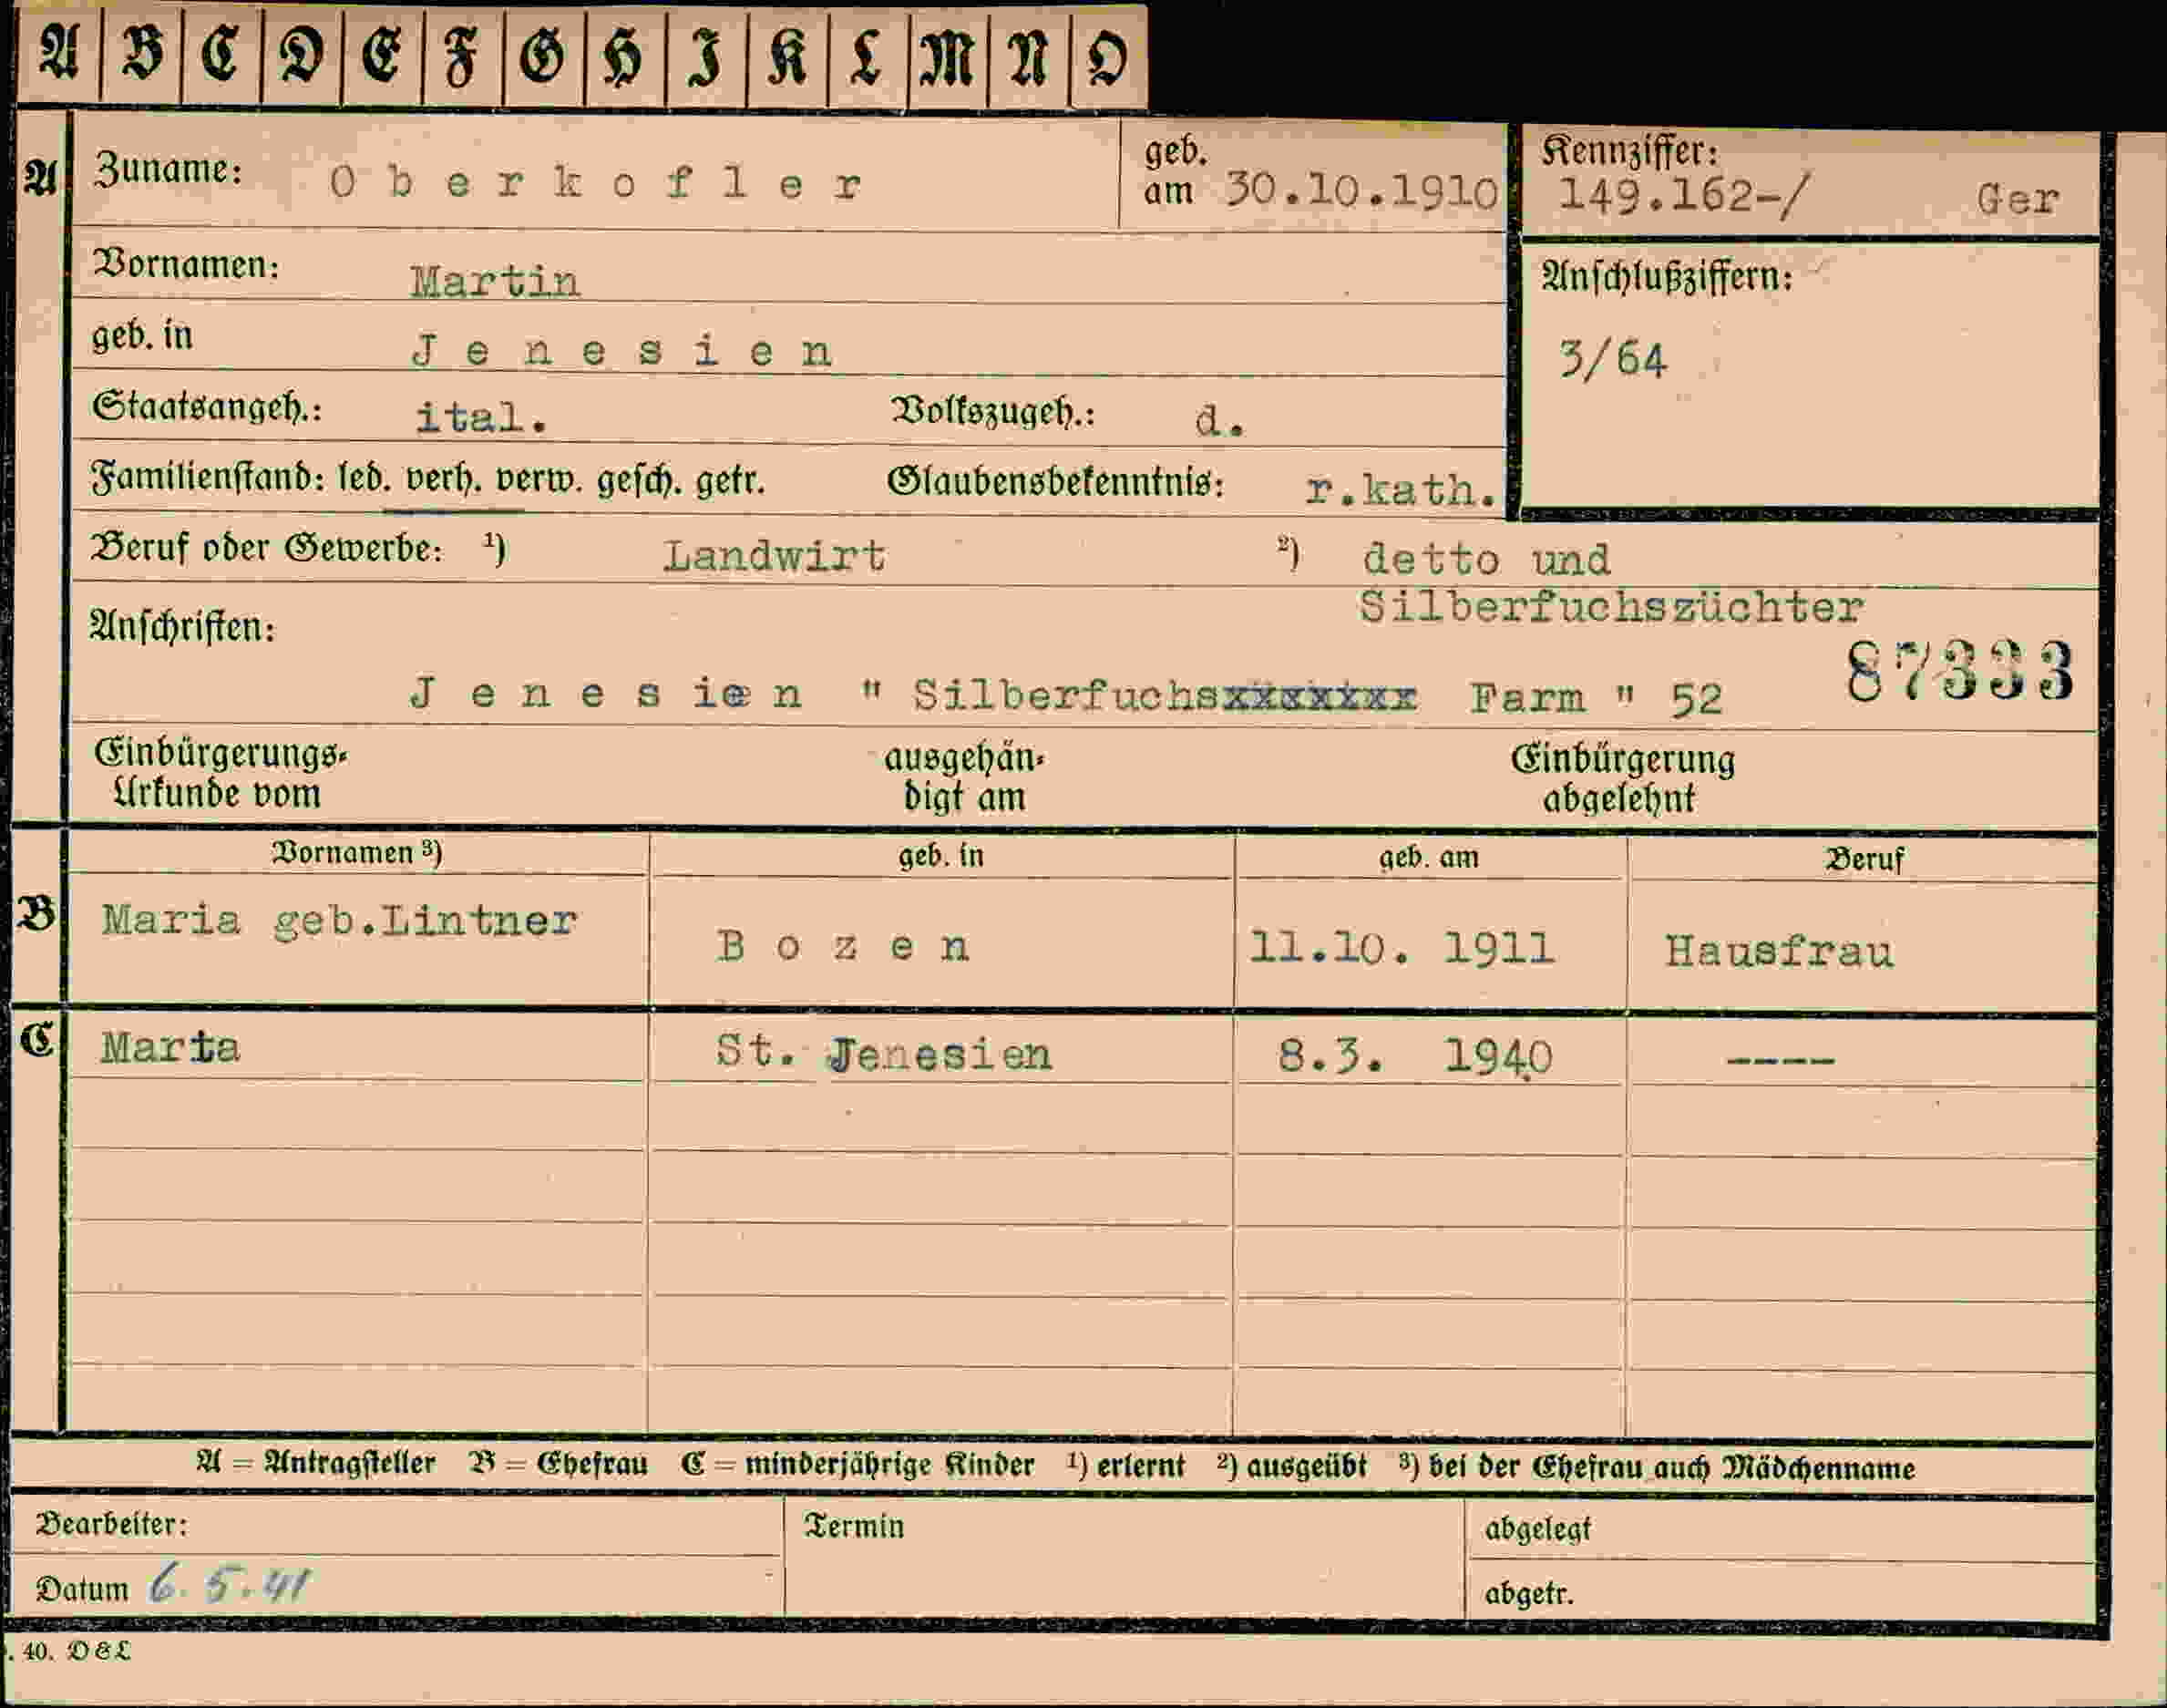 A B C D E F G H I K L M N O
A Zuname: Oberkofler geb. am 30.10.1910 Kennziffer: 149.162-/ Ger
Vornamen: Martin Anschlußziffern:
geb. in Jenesien 3/64
Staatsangeh.: ital. Volkszugeh.: d.
Familienstand: led. verh. verw. gesch. getr. Glaubensbekenntnis: r.kath.
Beruf oder Gewerbe: ¹) Landwirt ²) detto und
Silberfuchszüchter
Anschriften:
87333
Jenesien " Silberfuchsxxxxxxx Farm " 52
Einbürgerungs- ausgehän- Einbürgerung
Urkunde vom digt am abgelehnt
Vornamen ³) geb. in geb. am Beruf
B Maria geb.Lintner Bozen 11.10. 1911 Hausfrau
C Marta St. Jenesien 8.3. 1940 ----
A = Antragsteller B = Ehefrau C = minderjährige Kinder ¹) erlernt ²) ausgeübt ³) bei der Ehefrau auch Mädchenname
Bearbeiter: Termin abgelegt
Datum 6.5.41 abgetr.
. 40. D&L